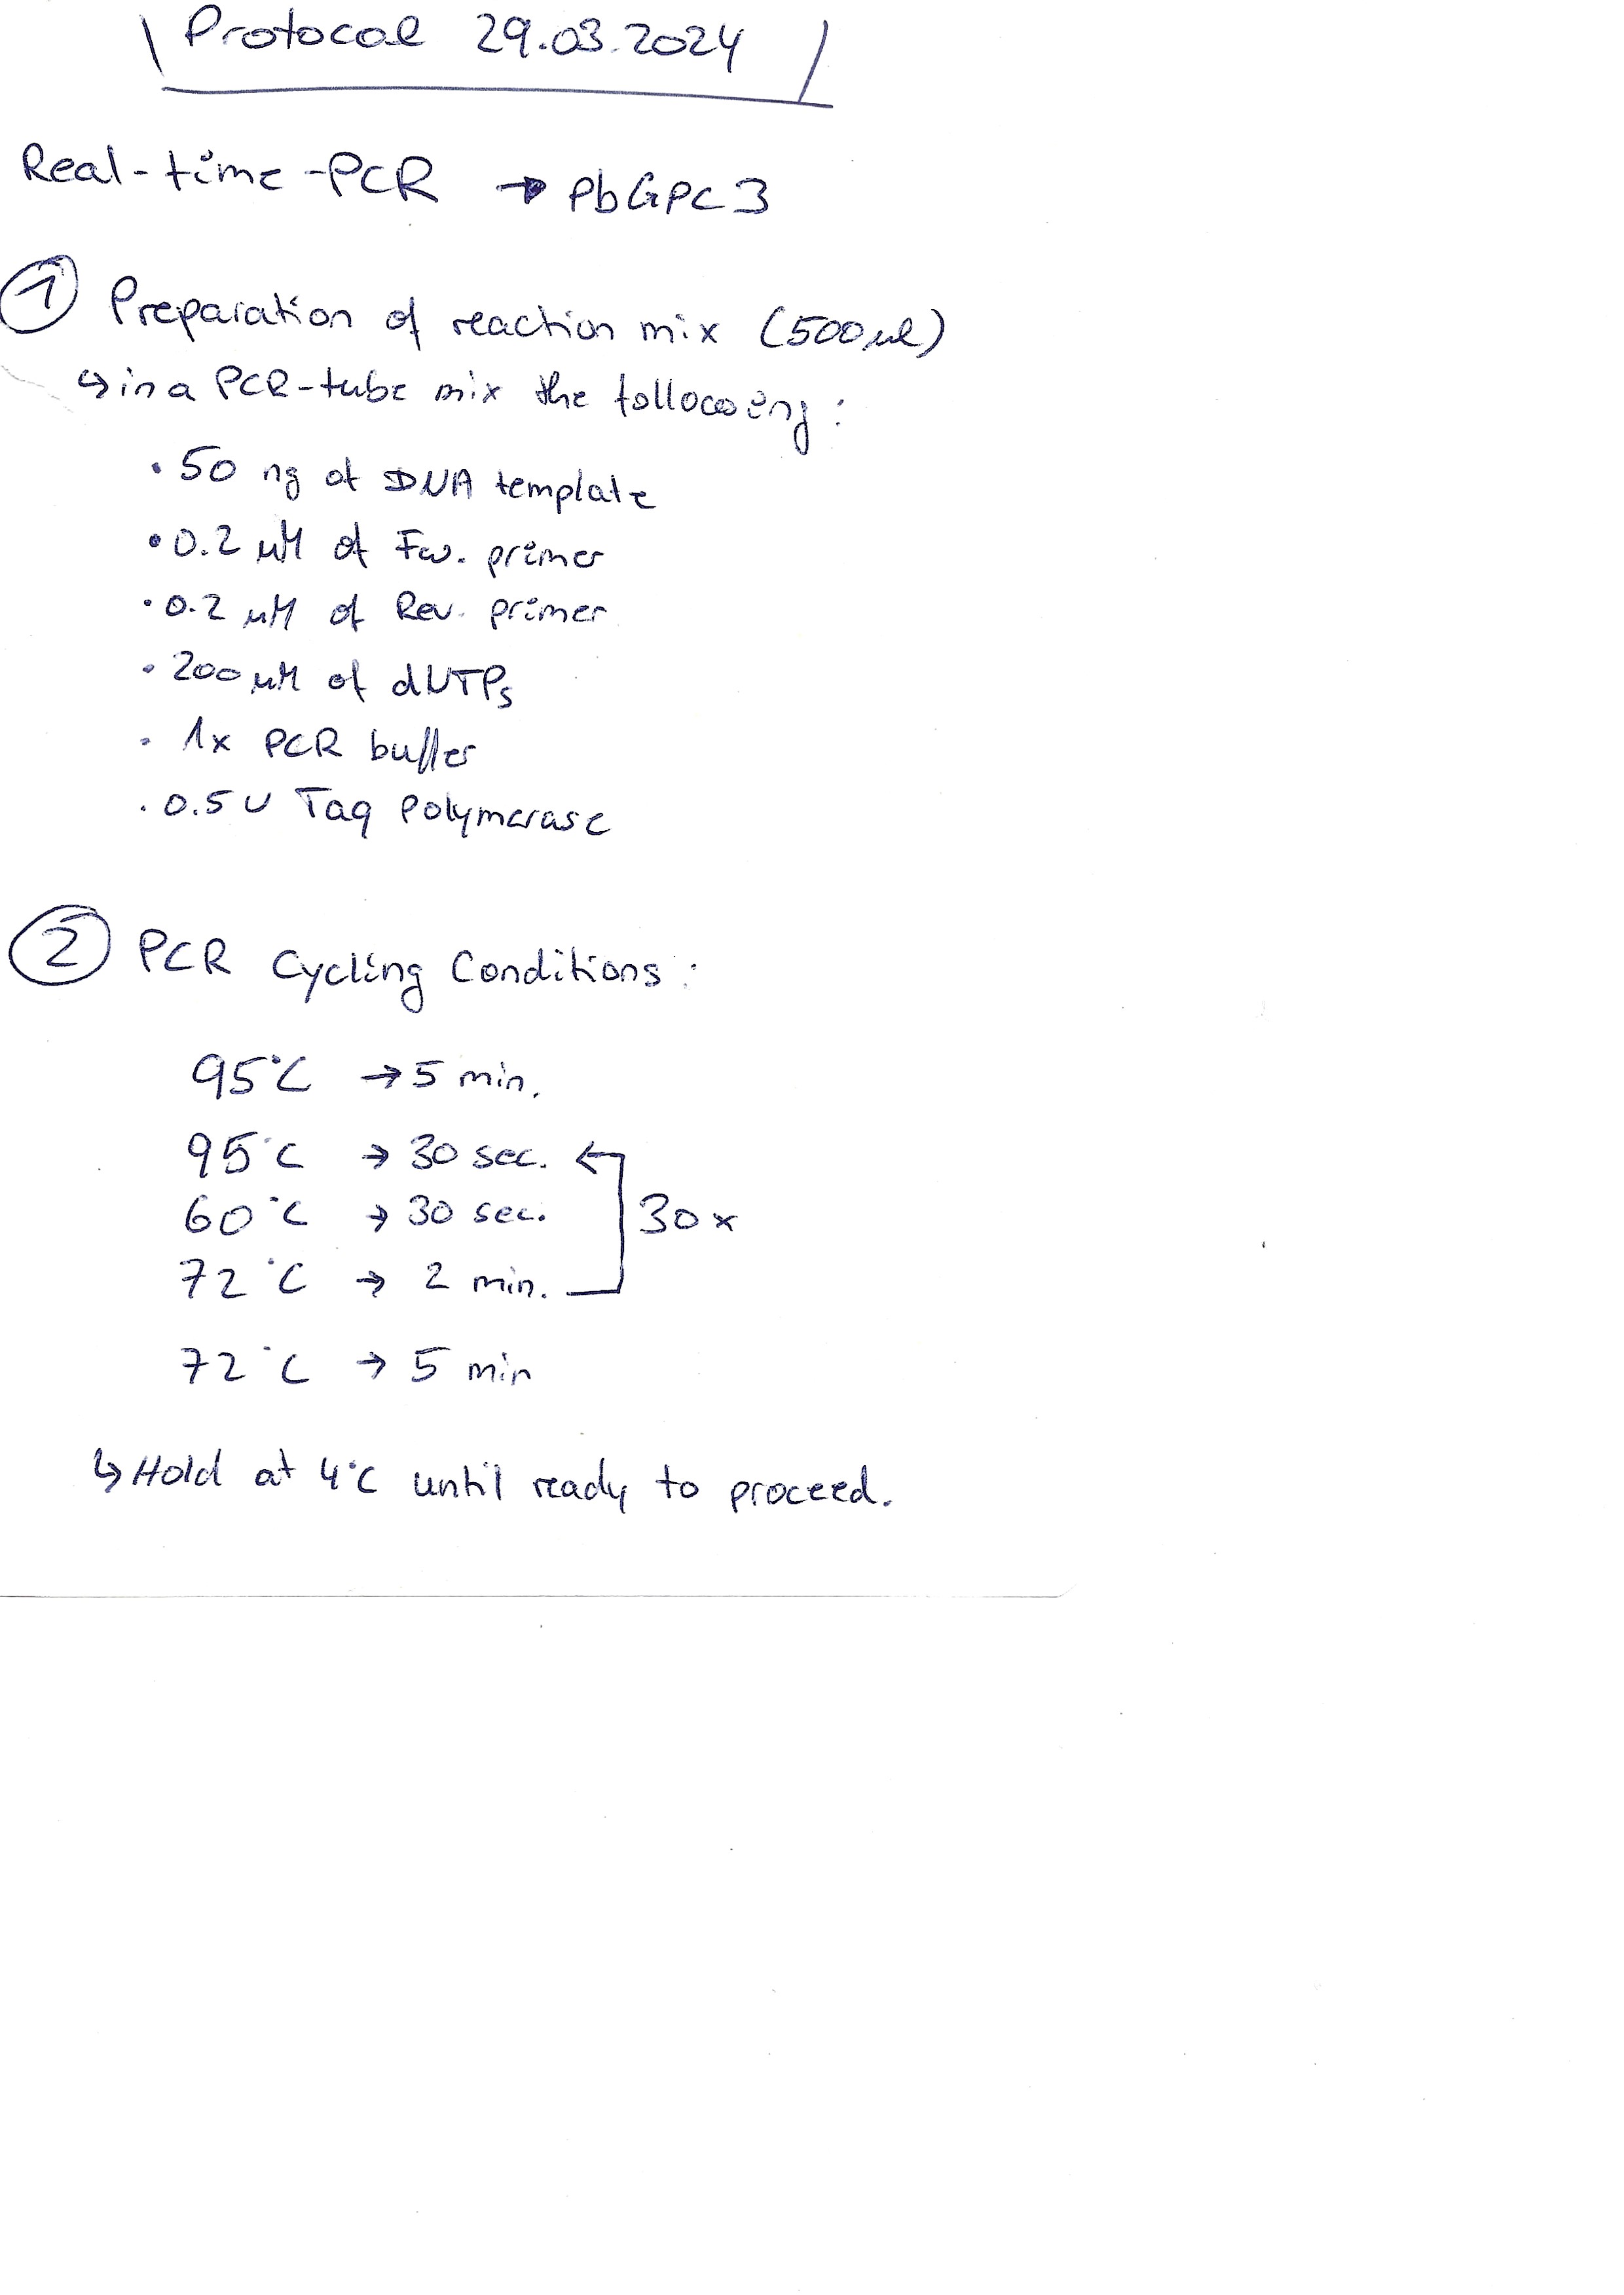 Protocol 29.03.2024
Real-time-PCR → PbGPC3
1 Preparation of reaction mix (500µl)
↳ in a PCR-tube mix the following:
• 50 ng of DNA template
• 0.2 µM of Fw. primer
• 0.2 µM of Rev. primer
• 200 µM of dNTPs
• 1x PCR buffer
• 0.5 U Taq Polymerase
2 PCR Cycling Conditions:
95°C → 5 min.
95°C → 30 sec. ←
60°C → 30 sec. 30x
72°C → 2 min.
72°C → 5 min
↳ Hold at 4°C until ready to proceed.